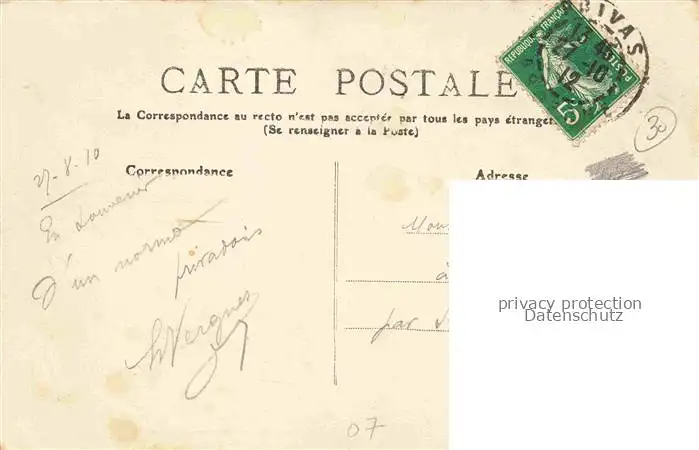 PRIVAS
13 45
27-10
12
RÉPUBLIQUE FRANÇAISE
POSTES
5c
30
CARTE POSTALE
La Correspondance au recto n'est pas acceptée par tous les pays étranger
(Se renseigner à la Poste)
Correspondance
Adresse
27-8-10
En souvenir
D'un normal
privadois
Vergnes
Mon
à
par S
07
privacy protection
Datenschutz